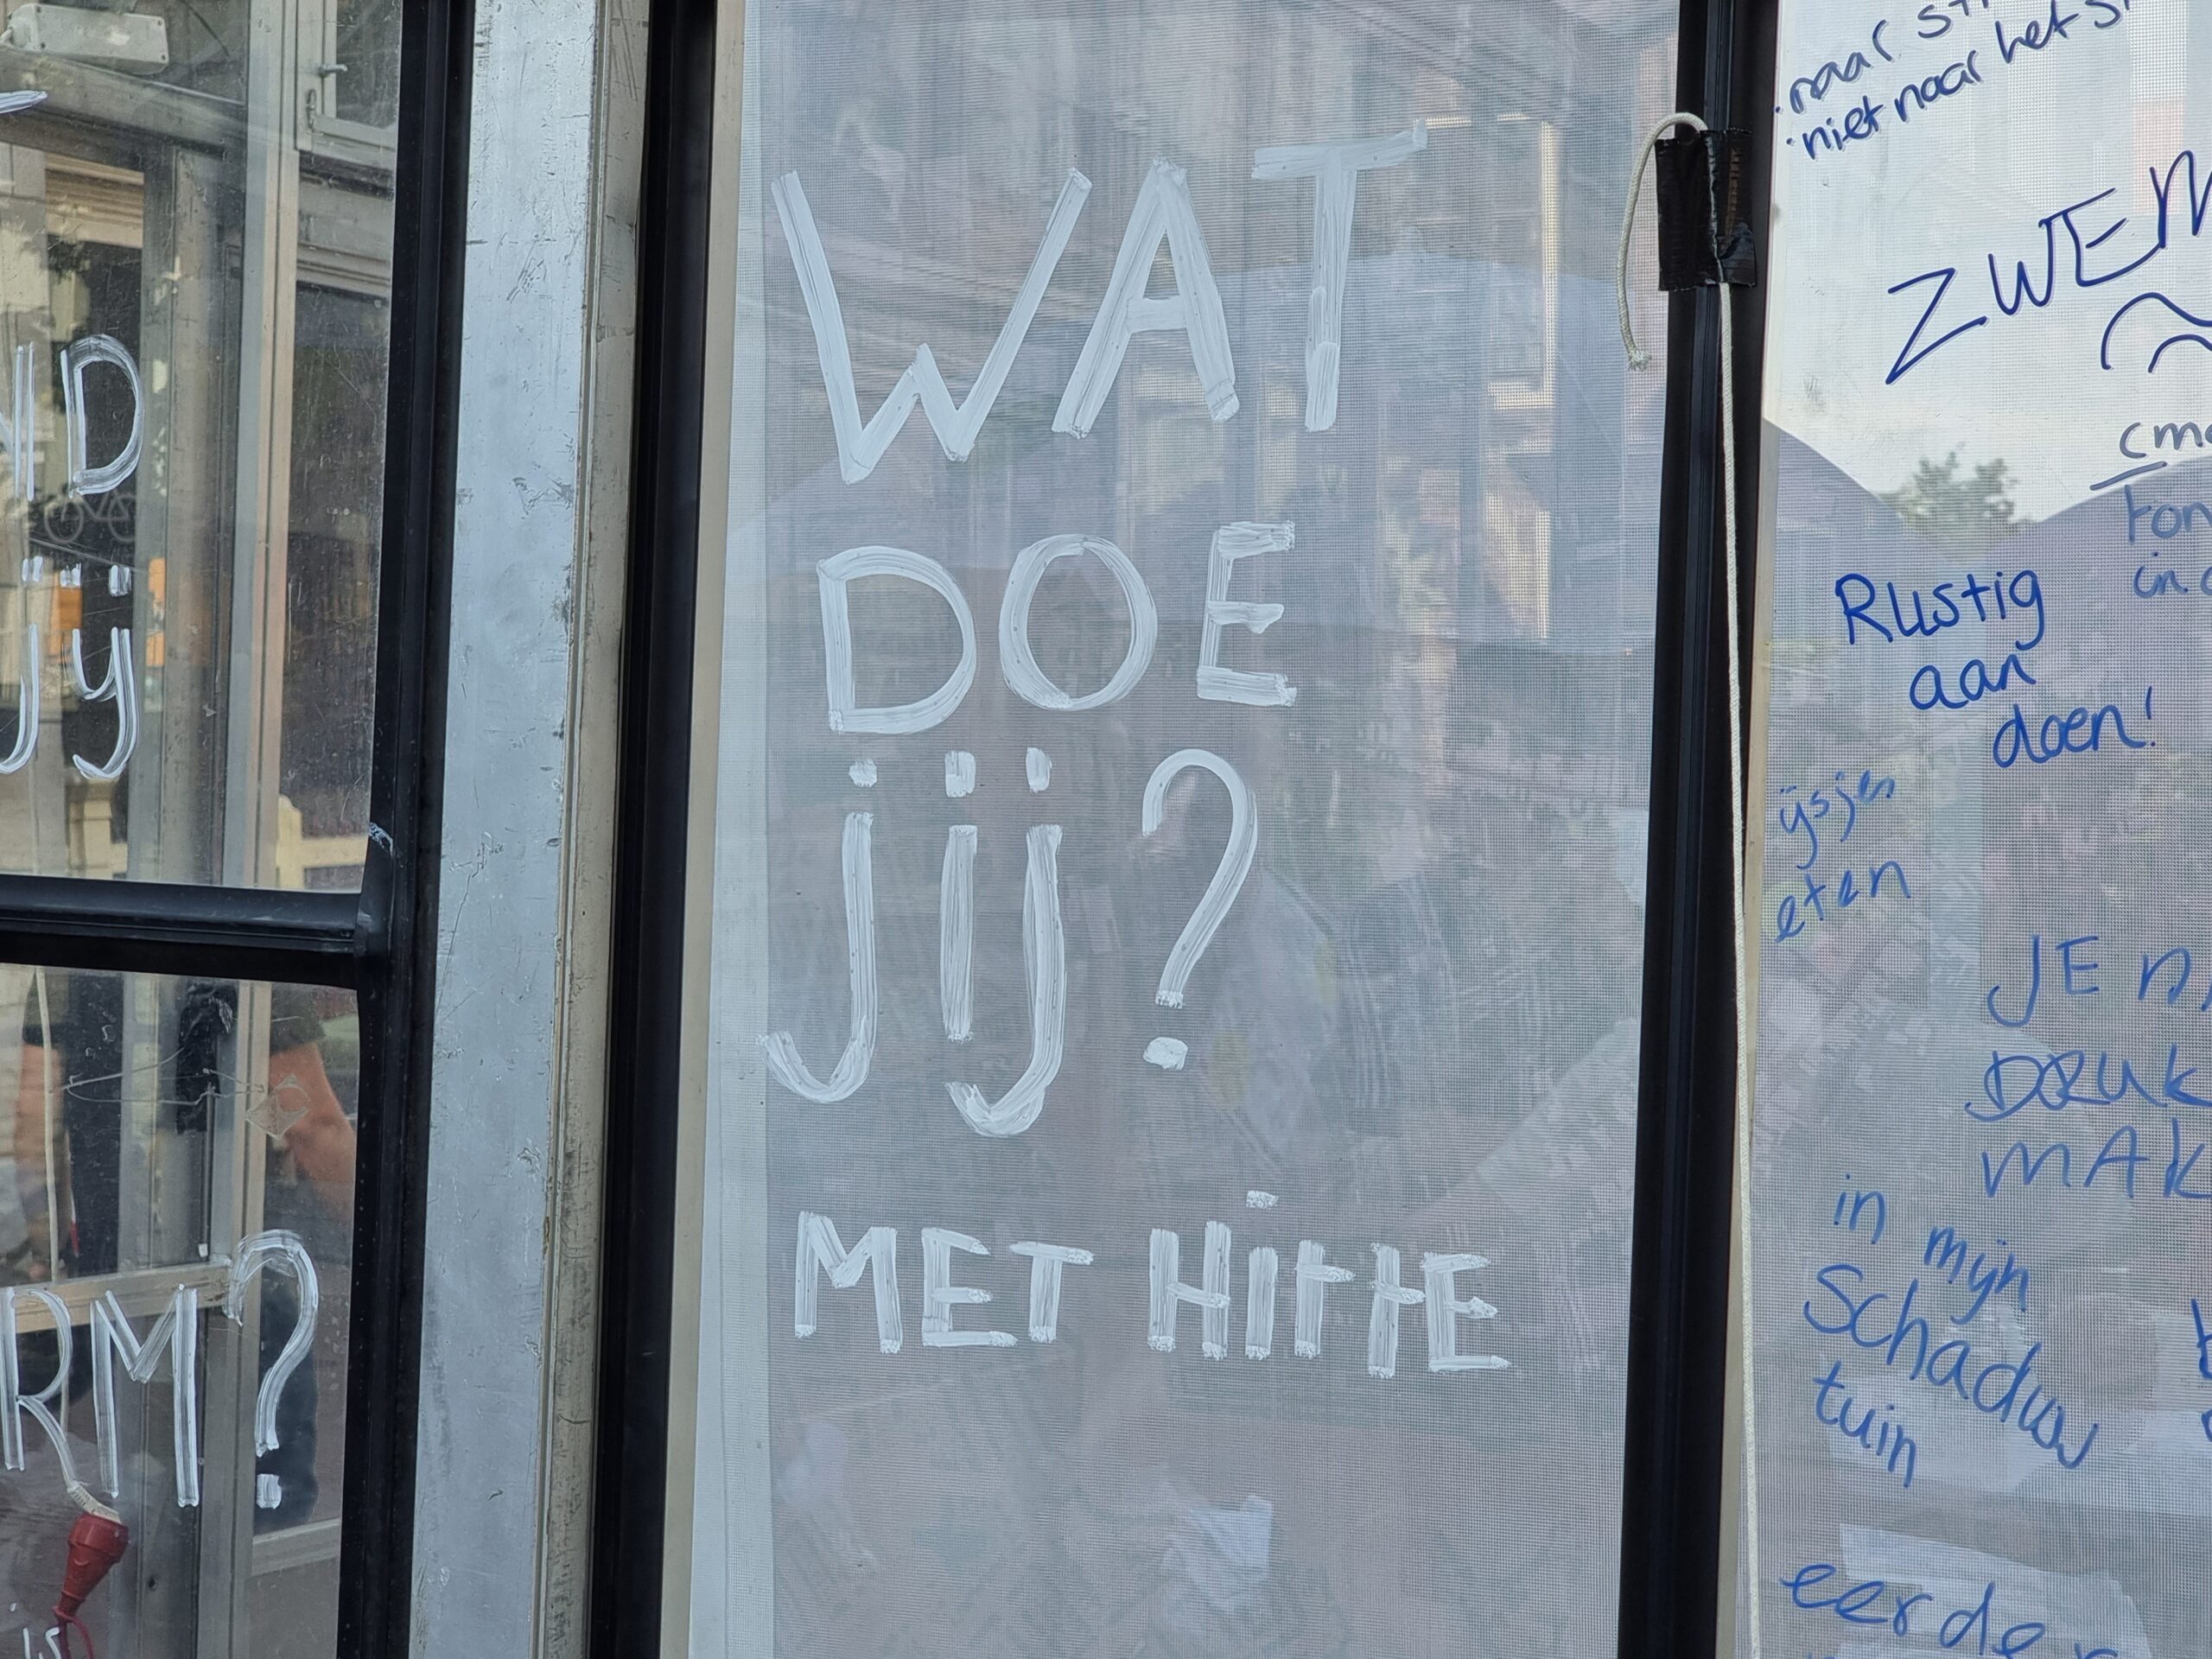 jij
RM?
is
WAT
DOE
jij?
MET HiTTE
naar
niet naar het
ZWEM
Rustig
aan
doen!
ijsjes
eten
JE
DRUK
MAK
in mijn
Schaduw
tuin
eerder